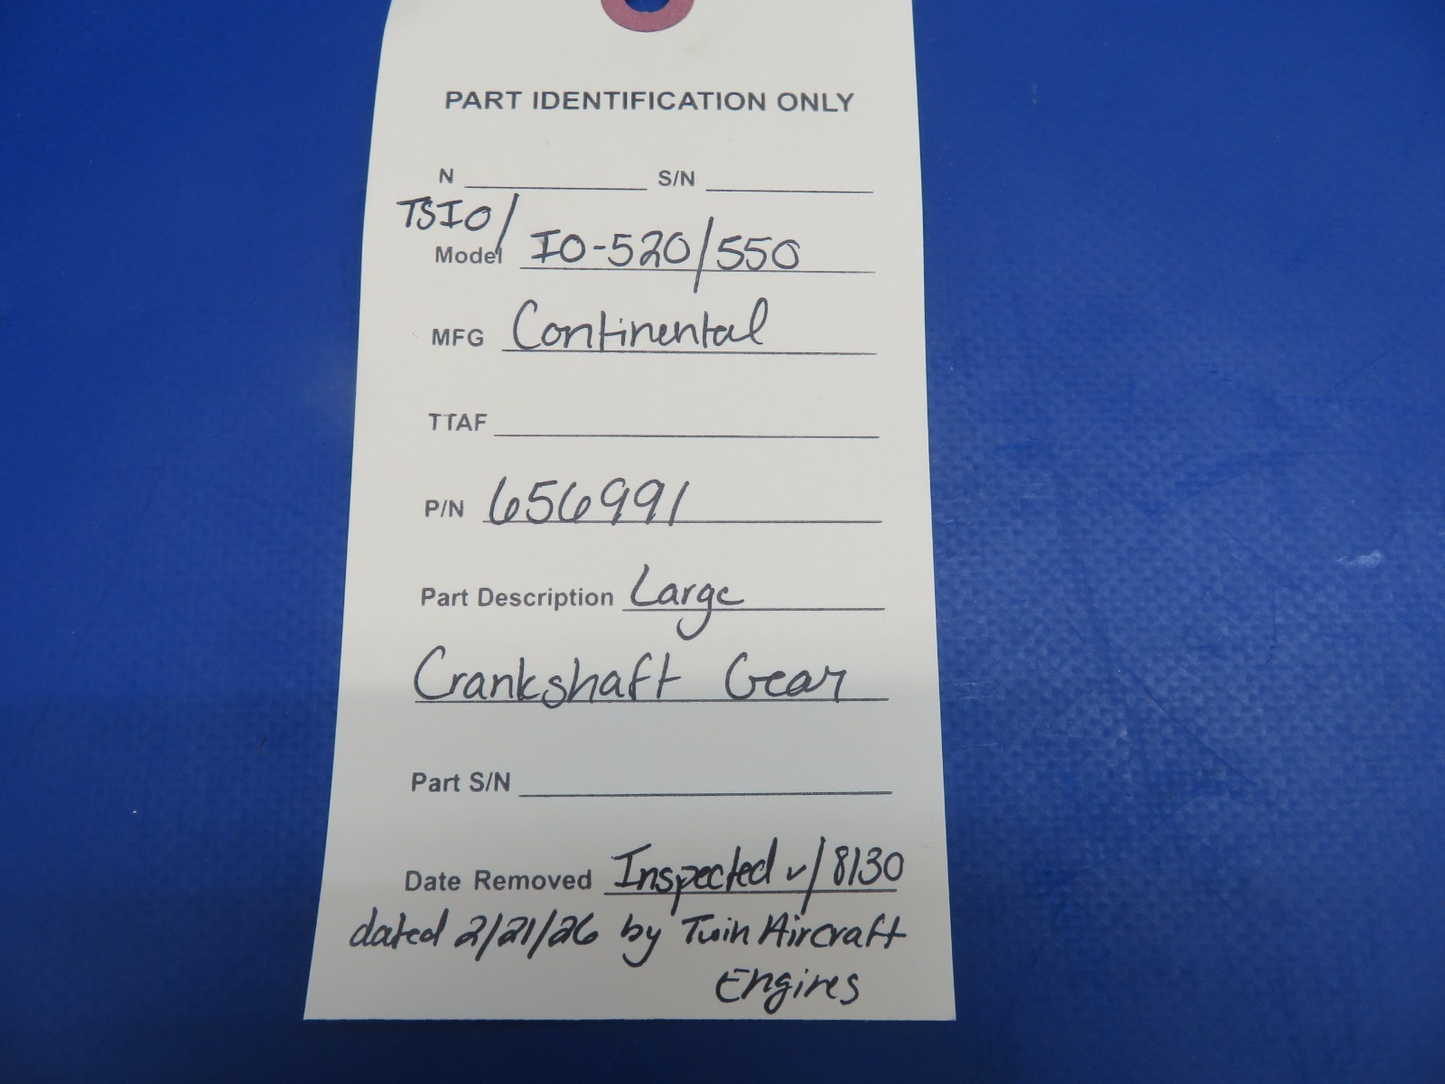 PART IDENTIFICATION ONLY
N S/N
TSIO/
Model IO-520/550
MFG Continental
TTAF
P/N 656991
Part Description Large
Crankshaft Gear
Part S/N
Date Removed Inspected w/8130
dated 2/21/26 by Twin Aircraft
Engines